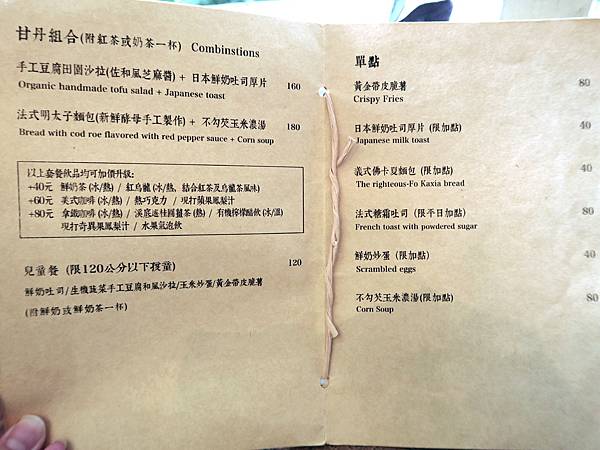 甘丹組合(附紅茶或奶茶一杯) Combinstions
手工豆腐田園沙拉(佐和風芝麻醬) + 日本鮮奶吐司厚片 160
Organic handmade tofu salad + Japanese toast
法式明太子麵包(新鮮酵母手工製作) + 不勾芡玉米濃湯 180
Bread with cod roe flavored with red pepper sauce + Corn soup
以上套餐飲品均可加價升級:
+40元 鮮奶茶 (冰/熱) / 紅烏龍 (冰/熱, 結合紅茶及烏龍茶風味)
+60元 美式咖啡 (冰/熱) / 熱巧克力 / 現打蘋果鳳梨汁
+80元 拿鐵咖啡 (冰/熱) / 漢底逐桂圓薑茶 (熱) / 有機檸檬醋飲 (冰/溫)
現打奇異果鳳梨汁 / 水果氣泡飲
兒童餐 (限120公分以下孩童) 120
鮮奶吐司/生機蔬菜手工豆腐和風沙拉/玉米炒蛋/黃金帶皮脆薯
(附鮮奶或鮮奶茶一杯)
單點
黃金帶皮脆薯 80
Crispy Fries
日本鮮奶吐司厚片 (限加點) 40
Japanese milk toast
義式佛卡夏麵包 (限加點) 40
The righteous-Fo Kaxia bread
法式糖霜吐司 (限平日加點) 80
French toast with powdered sugar
鮮奶炒蛋 (限加點) 40
Scrambled eggs
不勾芡玉米濃湯(限加點) 80
Corn Soup